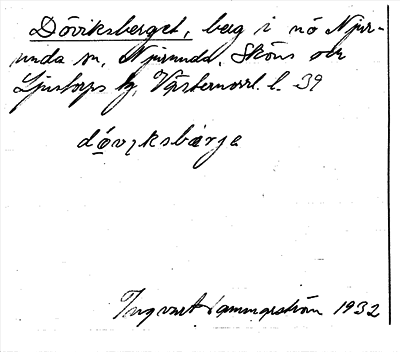 Döviksberget, berg i nö Njur-
unda sn, Njurunda, Sköns och
Ljustorps tg, Västernorrl. l. 39
dövıksbärje
Ingvart 1932